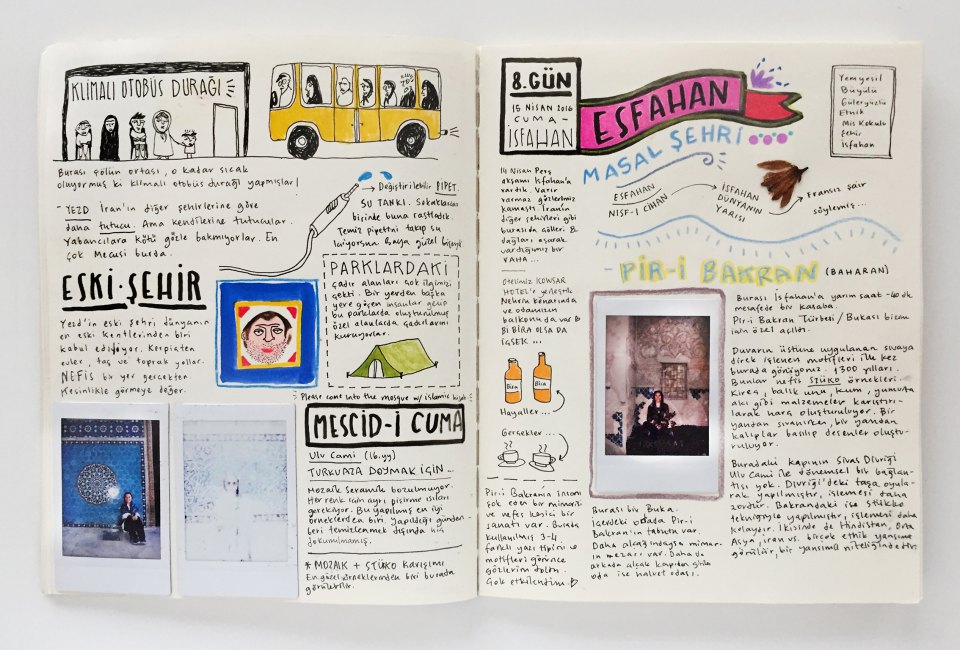 KLİMALI OTOBÜS DURAĞI
Burası çölün ortası, o kadar sıcak
oluyormuş ki klimalı otobüs durağı yapmışlar!
- YEZD İran'ın diğer şehirlerine göre
daha tutucu. Ama kendilerine tutucular.
Yabancılara kötü gözle bakmıyorlar. En
çok Mecusi burda.
Değiştirilebilir PİPET.
SU TANKI. Sokaklarda
birinde buna rastladık.
Temiz pipetini takıp su
içiyorsun. Baya güzel
ESKİ·ŞEHİR
Yezd'in eski şehri dünyanın
en eski kentlerinden biri
kabul ediliyor. Kerpiçten
evler, taş ve toprak yollar.
NEFİS bir yer gerçekten.
Kesinlikle görmeye değer.
PARKLARDAKİ
çadır alanları çok ilgimizi
çekti. Bir yerden başka
yere göçen insanlar gelip
bu parklarda oluşturulmuş
özel alanlarda çadırlarını
kuruyorlar.
Please come into the mosque w/ islamic hijab
MESCİD-İ CUMA
Ulu Cami (16.yy)
TURKUAZA DOYMAK İÇİN...
Mozaik Seramik bozulmuyor.
Her renk için ayrı pişirme ısıları
gerekiyor. Bu yapılmış en iyi
örneklerden biri. Yapıldığı günden
beri temizlenmek dışında hiç
dokunulmamış.
* MOZAİK + STÜKO KARIŞIMI
En güzel örneklerinden biri burada
görülebilir.
8.GÜN
15 NİSAN 2016
CUMA-
İSFAHAN
ESFAHAN
MASAL ŞEHRİ
Yemyeşil
Büyülü
Güleryüzlü
Etnik
Mis Kokulu
Şehir
İsfahan
14 Nisan Perş
akşamı İsfahan'a
vardık. Varır
varmaz gözlerimiz
kamaştı. İran'ın
diğer şehirleri gibi
burasıda çöller &
dağları aşarak
vardığımız bir
VAHA...
ESFAHAN
NISF-I CİHAN
İSFAHAN
DÜNYANIN
YARISI
Fransız şair
söylemiş...
Otelimiz KOWSAR
HOTEL'e yerleştik.
Nehrin kenarında
ve odamızın
balkonu da var
Bİ BİRA OLSA DA
İÇSEK...
Bira
Bira
Hayaller...
Gerçekler...
Pir-i Bakran'a insanı
şok eden bir mimarisi
ve nefes kesici bir
sanatı var. Burada
kullanılmış 3-4
farklı yazı tipini ve
motifleri görünce
gözlerim doldu.
Çok etkilendim.
- PİR-İ BAKRAN (BAHARAN)
Burası İsfahan'a yarım saat - 40 dk
mesafede bir kasaba.
Pir-i Bakran Türbesi / Bukası bizim
için özel açıldı.
Duvarın üstüne uygulanan sıvaya
direk işlenen motifleri ilk kez
burada görüyoruz. 1300 yılları.
Bunlar nefis STÜKO örnekleri.
Kireç, balık unu, kum, yumurta
akı gibi malzemeler karıştırı-
larak harç oluşturuluyor. Bir
yandan sıvanırken, bir yandan
kalıplar basılıp desenler oluştu-
ruluyor.
Buradaki kapının Sivas Divriği
Ulu Cami ile dönemsel bir bağlan-
tısı yok. Divriği'deki taşa oyula-
rak yapılmıştır, işlemesi daha
zordur. Bakrandaki ise stükko
tekniğiyle yapılmıştır, işlemesi daha
kolaydır. İkisinde de Hindistan, Orta
Asya, İran vs. birçok etnik yansıma
görülür, bir yansıması niteliğindedir.
Burası bir Buka.
İçerdeki odada Pir-i
Bakran'ın tabutu var.
Daha alçağındaysa mimar-
ın mezarı var. Daha da
arkada alçak kapıdan girilen
oda ise halvet odası.